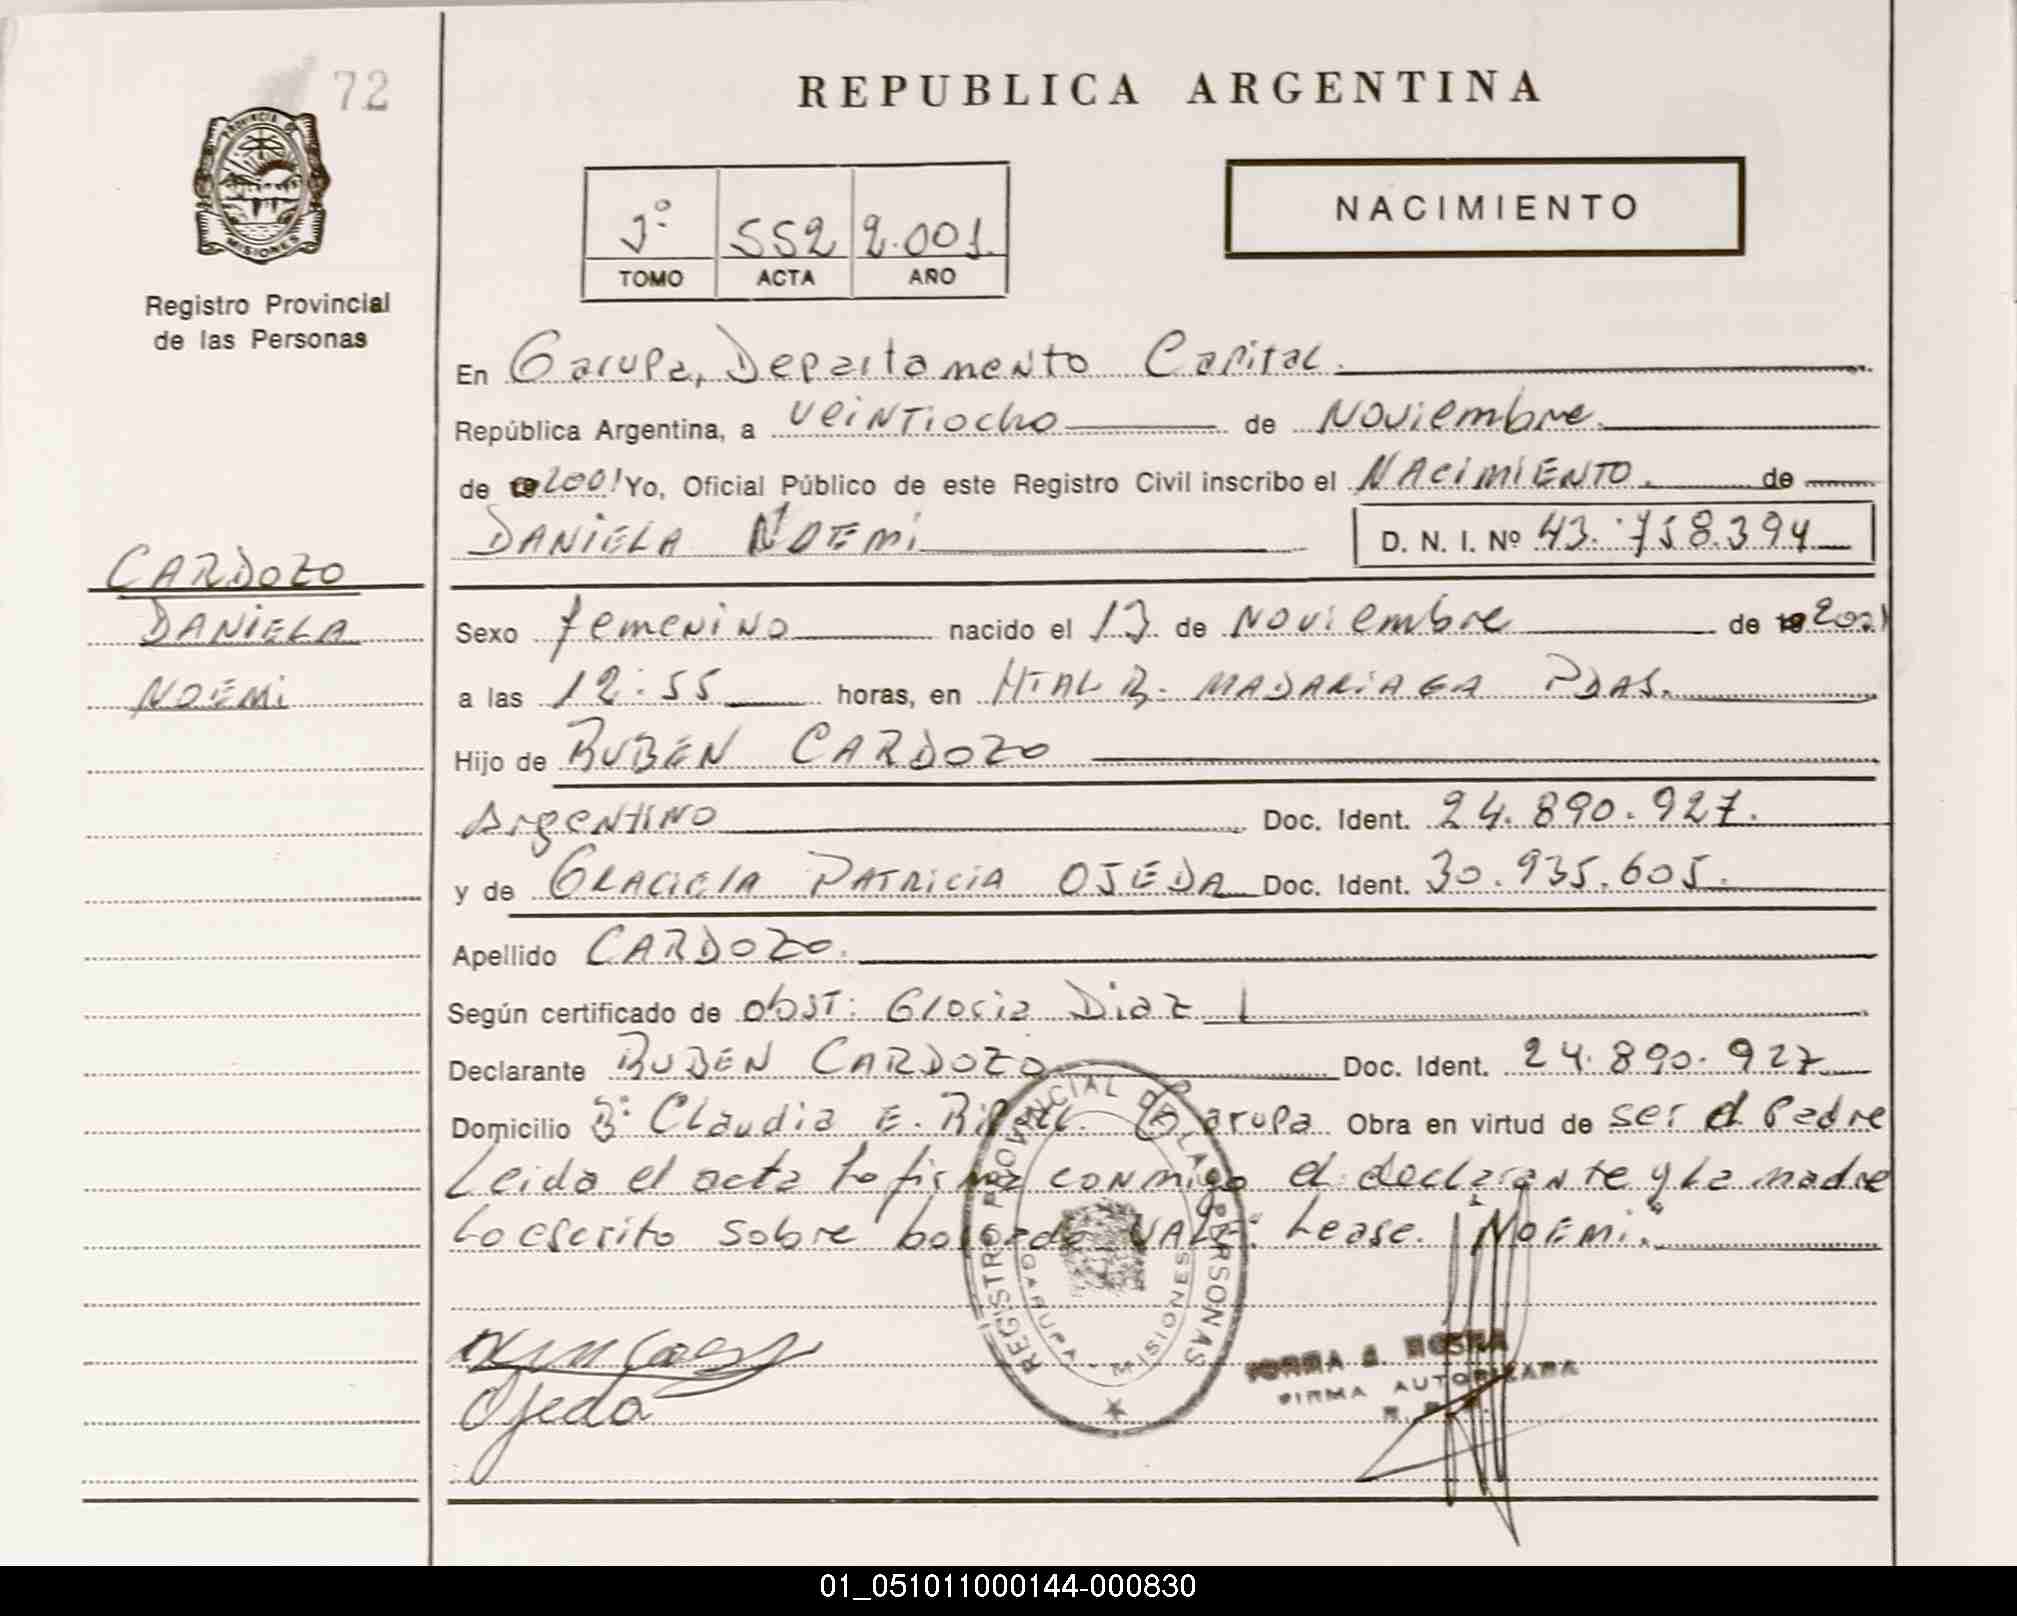 72
PROVINCIA DE
MISIONES
Registro Provincial
de las Personas
REPUBLICA ARGENTINA
NACIMIENTO
J° 552 2.001.
TOMO ACTA AÑO
En Garupa, Departamento Capital.
República Argentina, a veintiocho de Noviembre.
de 2001 Yo, Oficial Público de este Registro Civil inscribo el NACIMIENTO. de
DANIELA NOEMI D. N. I. Nº 43.758.394
CARDOZO
DANIELA
NOEMI
Sexo femenino nacido el 13 de Noviembre de 2001
a las 12:55 horas, en HTAL R. MADARIAGA PDAS.
Hijo de RUBEN CARDOZO
Argentino Doc. Ident. 24.890.927.
y de GRACIELA PATRICIA OJEDA Doc. Ident. 30.935.605.
Apellido CARDOZO.
Según certificado de obst: Gloria Diaz
Declarante RUBEN CARDOZO Doc. Ident. 24.890.927
Domicilio B° Claudia E. Garupa Obra en virtud de ser el Padre
Leida el acta la firma conmigo el declarante y la madre
Lo escrito sobre borrado VALE: Lease. "NOEMI".
REGISTRO PROVINCIAL DE LAS PERSONAS
GARUPA - MISIONES
Ojeda
FIRMA AUTORIZADA
01_051011000144-000830